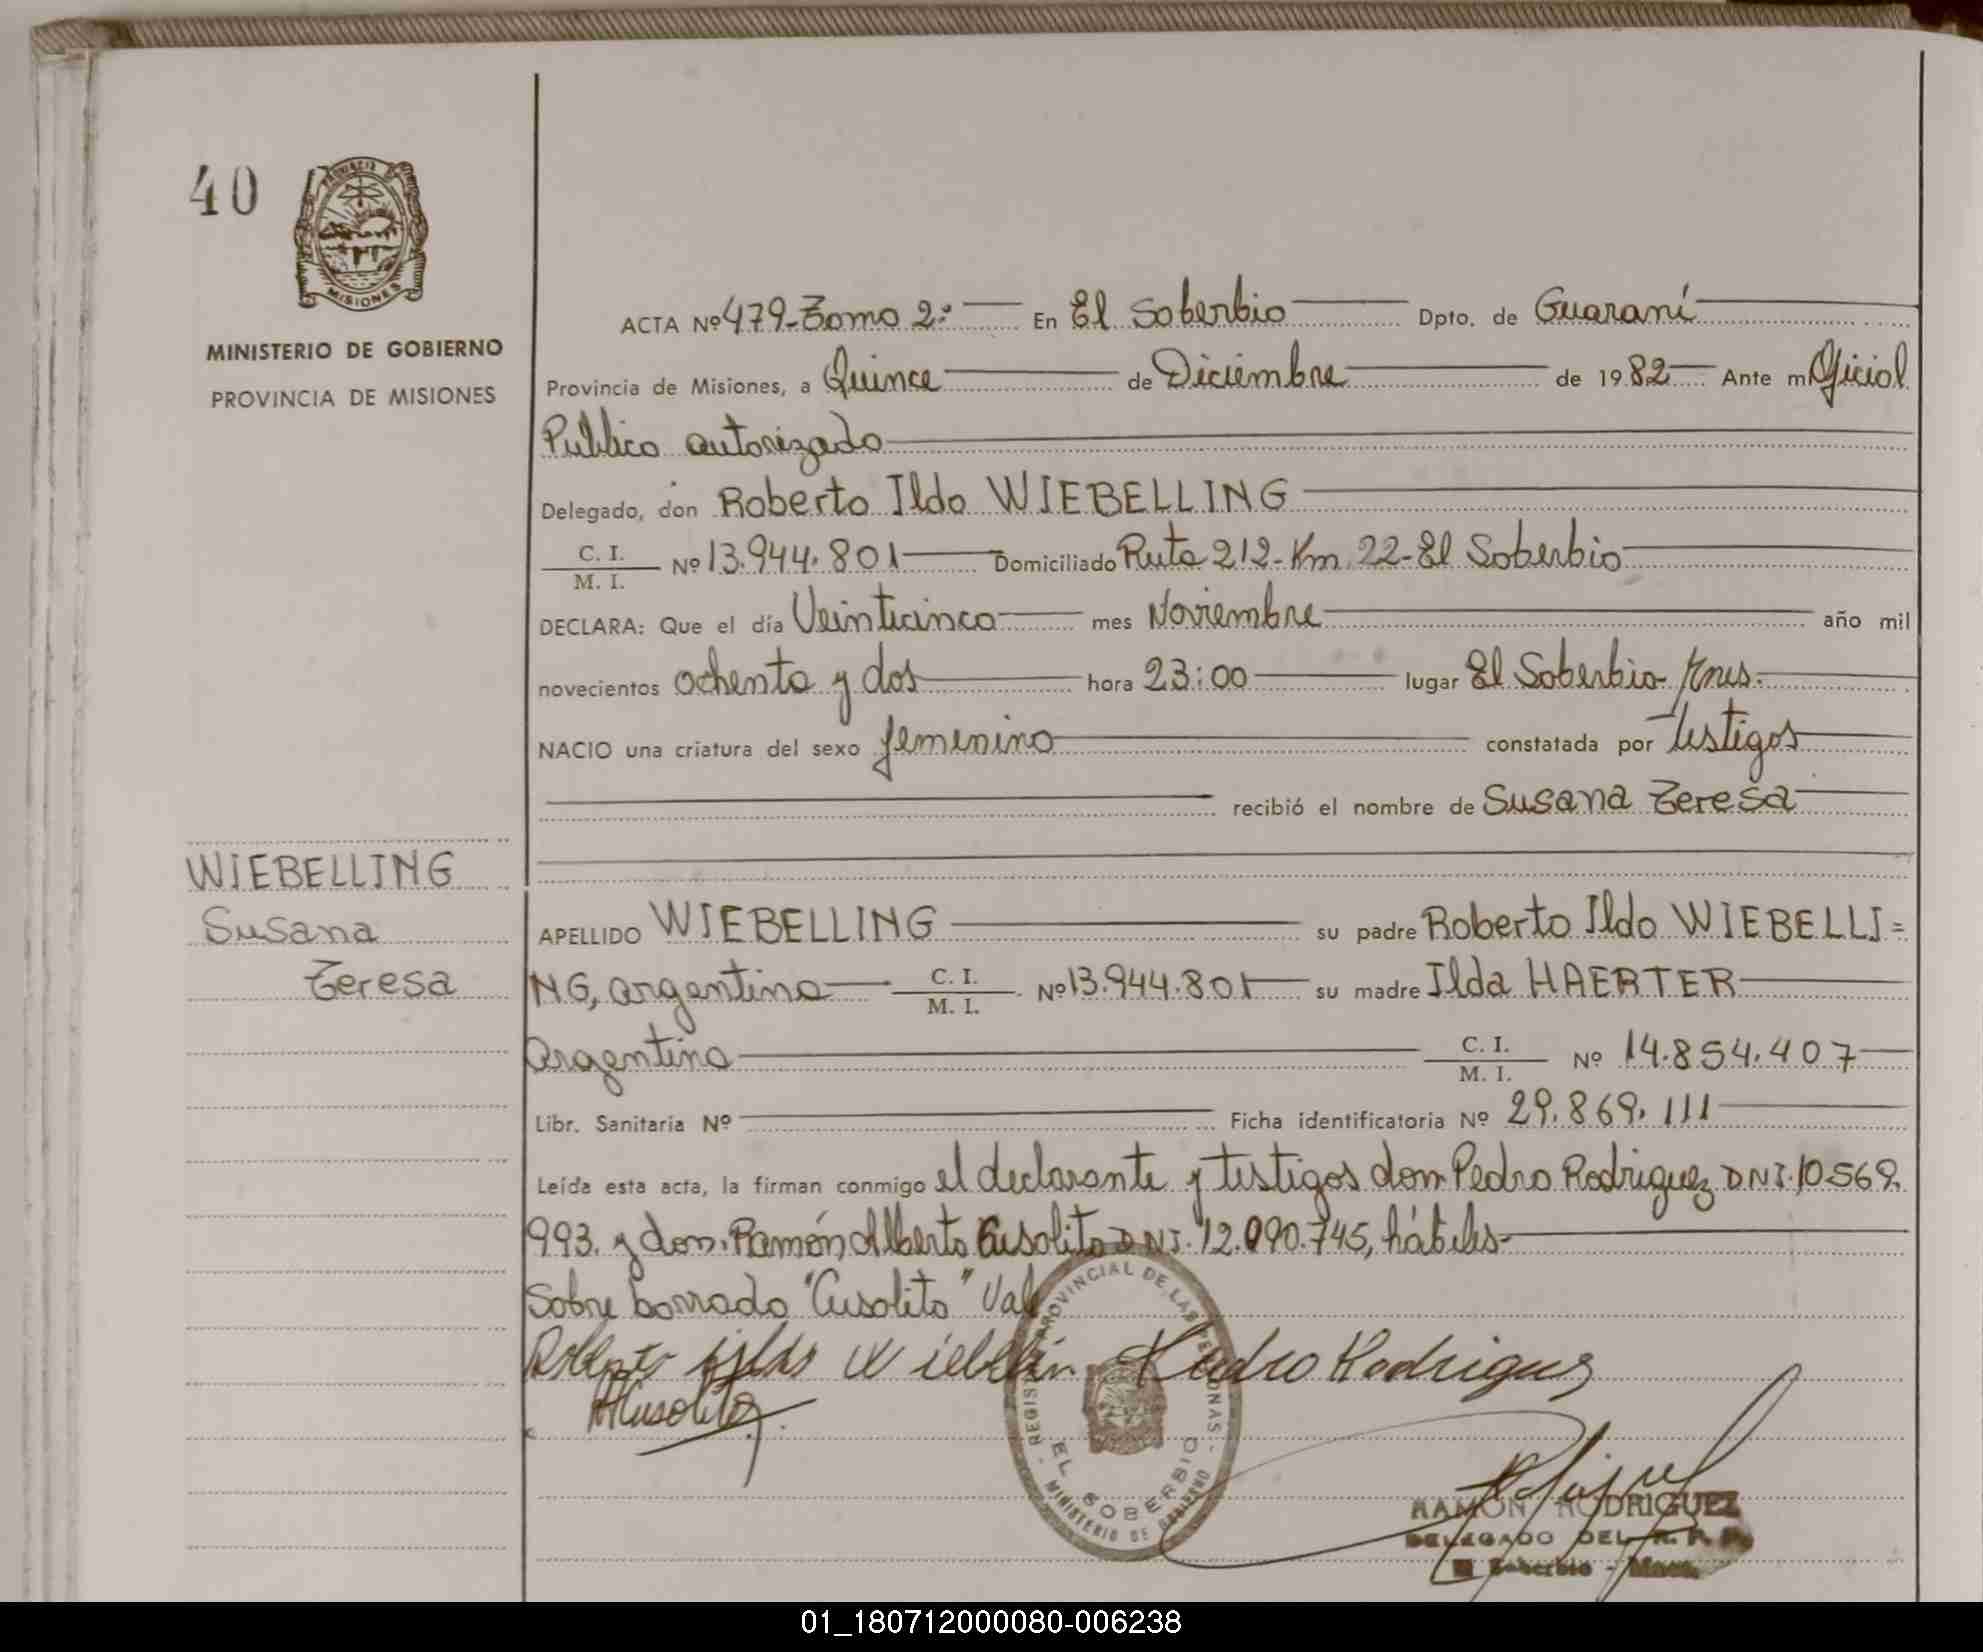 40
PROVINCIA DE
MISIONES
MINISTERIO DE GOBIERNO
PROVINCIA DE MISIONES
ACTA Nº 479-Tomo 2º En El Soberbio Dpto. de Guaraní
Provincia de Misiones, a Quince de Diciembre de 1982 Ante mí Oficial
Publico autorizado
Delegado, don Roberto Ildo WIEBELLING
C. I.
M. I. Nº 13.944.801 Domiciliado Ruta 212-Km 22-El Soberbio
DECLARA: Que el día Veinticinco mes Noviembre año mil
novecientos ochenta y dos hora 23:00 lugar El Soberbio-Mnes.
NACIO una criatura del sexo femenino constatada por testigos
recibió el nombre de Susana Teresa
WIEBELLING
Susana
Teresa
APELLIDO WIEBELLING su padre Roberto Ildo WIEBELLI=
NG, argentino C. I.
M. I. Nº 13.944.801 su madre Ilda HAERTER
argentina C. I.
M. I. Nº 14.854.407
Libr. Sanitaria Nº Ficha identificatoria Nº 29.869.111
Leída esta acta, la firman conmigo el declarante y testigos don Pedro Rodriguez DNI.10.569.
993. y don. Ramón Alberto Cusolito DNI. 12.090.745, hábiles-
Sobre borrado "Cusolito" Vale
Pedro Rodriguez
ACusolito
REGISTRO PROVINCIAL DE LAS PERSONAS -
EL SOBERBIO
MINISTERIO DE GOBIERNO
RAMON RODRIGUEZ
DELEGADO DEL R. P. P.
El Soberbio - Mnes.
01_180712000080-006238